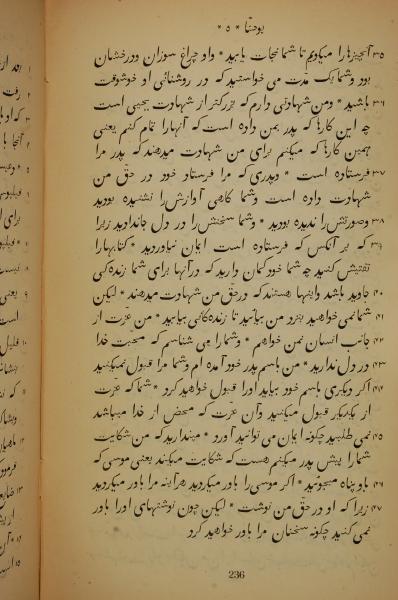 یوحنّا * ۵ *
۳۵ آنچیزها را میگویم تا شما نجات یابید * و او چراغ سوزان و درخشان
بود و شما یک مدت می خواستید که در روشنائی او خوشوقت
۳۶ باشید * و من شهادتی دارم که بزرگتر از شهادت یحیی است
چه این کارها که پدر بمن داده است که آنها را تمام کنم یعنی
همین کارها که میکنم برای من شهادت میدهند که پدر مرا
۳۷ فرستاده است * و پدری که مرا فرستاد خود در حق من
شهادت داده است و شما گاهی آوازش را نشنیده بودید
۳۸ و صورتش را ندیده بودید * و شما سخنش را در دل جا ندادید زیرا
۳۹ که بر آنکس که فرستاده است ایمان نیاوردید * کتابها را
تفتیش کنید چه شما خود گمان دارید که در آنها برای شما زنده‌گی
۴۰ جاوید باشد و اینها هستند که در حق من شهادت میدهند * لیکن
۴۱ شما نمی خواهید بنزد من بیائید تا زنده‌گانی بیابید * من عزت از
۴۲ جانب انسان نمی خواهم * و شما را می شناسم که محبت خدا
۴۳ در دل ندارید * من باسم پدر خود آمده ام و شما مرا قبول نمیکنید
۴۴ اگر دیگری باسم خود بیاید او را قبول خواهید کرد * شما که عزت
از یکدیگر قبول میکنید و آن عزت که محض از خدا میباشد
۴۵ نمی طلبید چگونه ایمان می توانید آورد * مپندارید که من شکایت
شما را پیش پدر میکنم هست که شکایت میکند یعنی موسی که
۴۶ باو پناه میجوئید * اگر موسی را باور میکردید هرآینه مرا باور میکردید
۴۷ زیرا که او در حق من نوشت * لیکن چون نوشتهای او را باور
نمی کنید چگونه سخنان مرا باور خواهید کرد
236